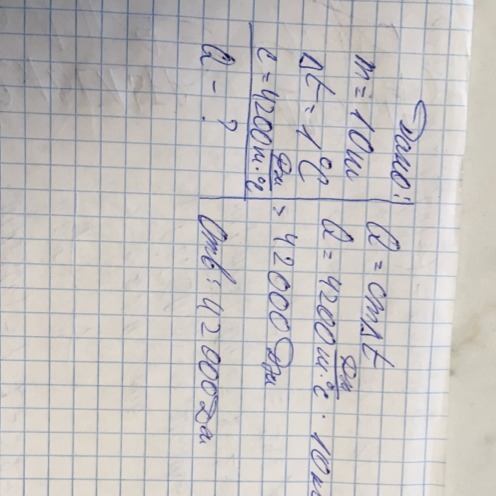 Дано:
m = 10 кг
Δt = 1°C
c = 4200 Дж/кг·°C
Q - ?
Q = cmΔt
Q = 4200 Дж/кг·°C · 10 кг
= 42000 Дж
Отв: 42000 Дж